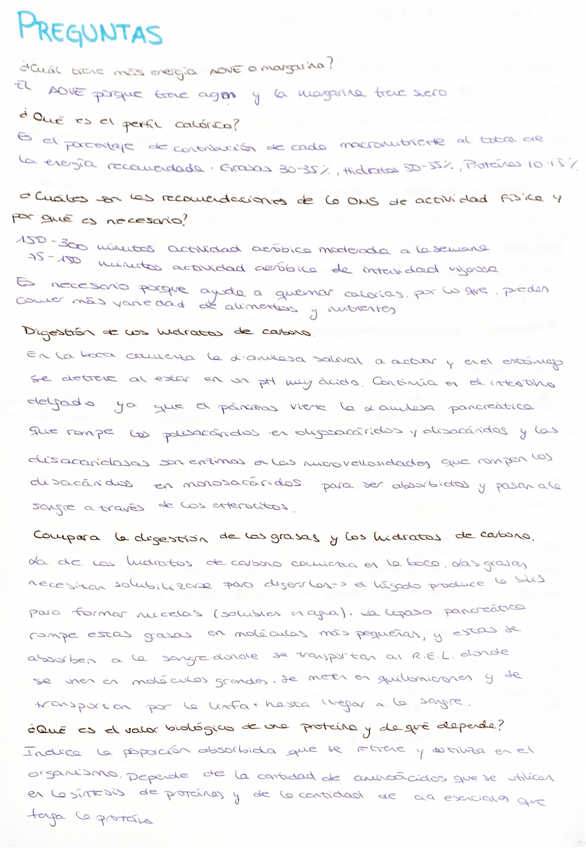 PREGUNTAS
¿Cuál tiene más energía AOVE o margarina?
El AOVE porque tiene agua y la margarina tiene suero
¿Qué es el perfil calórico?
Es el porcentaje de contribución de cada macronutriente al total de
la energía recomendada. Grasas 30-35%, Hidratos 50-55%, Proteínas 10-15%
¿Cuáles son las recomendaciones de la OMS de actividad física y
por qué es necesario?
150-300 minutos actividad aeróbica moderada a la semana
75-150 minutos actividad aeróbica de intensidad vigorosa
Es necesario porque ayuda a quemar calorías, por lo que, puedes
comer más variedad de alimentos y nutrientes
Digestión de los hidratos de carbono.
En la boca comienza la α-amilasa salival a activar y en el estómago
se detiene al estar en un pH muy ácido. Continúa en el intestino
delgado ya que el páncreas viene la α amilasa pancreática
que rompe los polisacáridos en oligosacáridos y disacáridos y las
disacaridasas son enzimas en las microvellosidades que rompen los
disacáridos en monosacáridos para ser absorbidos y pasan a la
sangre a través de los enterocitos.
Compara la digestión de las grasas y los hidratos de carbono.
La de los hidratos de carbono comienza en la boca. Las grasas
necesitan solubilizarse para digerirlas → el hígado produce la bilis
para formar micelas (solubles en agua). La lipasa pancreática
rompe estas grasas en moléculas más pequeñas, y estas se
absorben a la sangre donde se transportan al R.E.L. donde
se unen en moléculas grandes. Se meten en quilomicrones y se
transportan por la linfa hasta llegar a la sangre.
¿Qué es el valor biológico de una proteína y de qué depende?
Indica la proporción absorbida que se retiene y utiliza en el
organismo. Depende de la cantidad de aminoácidos que se utilicen
en la síntesis de proteínas y de la cantidad de aa esenciales que
tenga la proteína